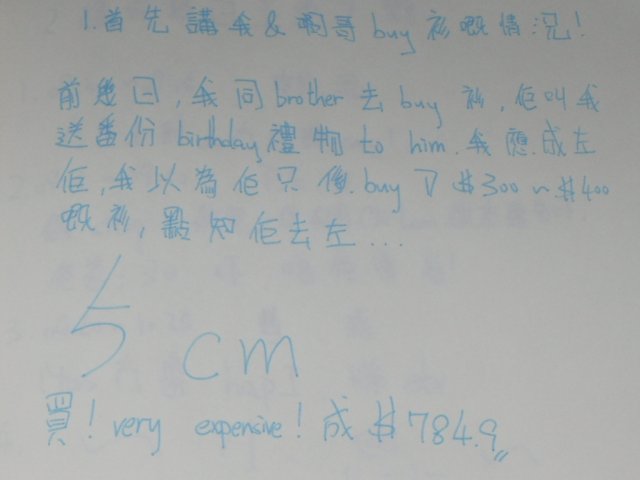 1.首先講我&啊哥buy衫嘅情況!
前幾日,我同brother去buy衫,佢叫我
送番份birthday禮物to him.我應成左
佢,我以為佢只係buy D $300~$400
嘅衫,點知佢去左...
5cm
買!very expensive!成$784.9"